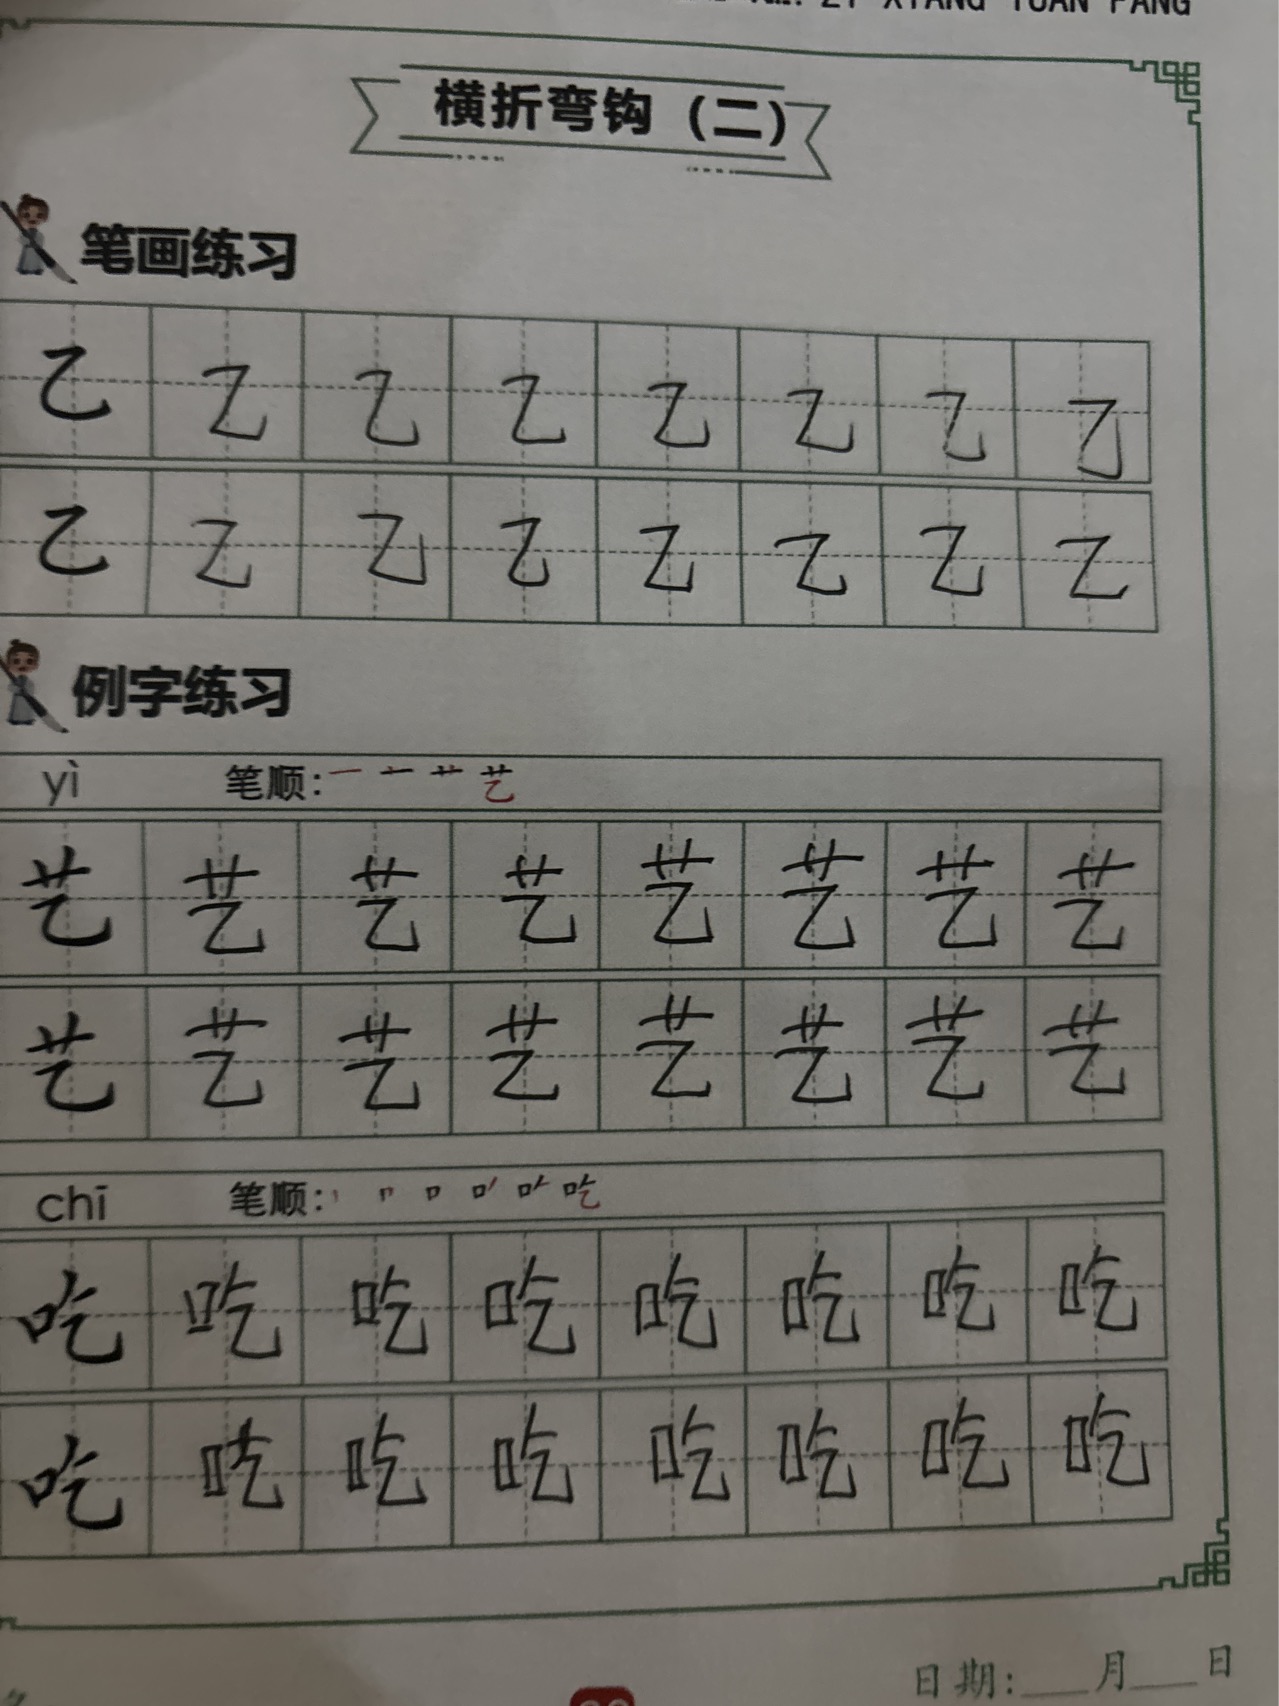 ZI XIANG YUAN FANG
横折弯钩（二）
笔画练习
乙 乙 乙 乙 乙 乙 乙 乙
乙 乙 乙 乙 乙 乙 乙 乙
例字练习
yì 笔顺: 艺
艺 艺 艺 艺 艺 艺 艺 艺
艺 艺 艺 艺 艺 艺 艺 艺
chī 笔顺: 吃
吃 吃 吃 吃 吃 吃 吃 吃
吃 吃 吃 吃 吃 吃 吃 吃
日期:___月___日